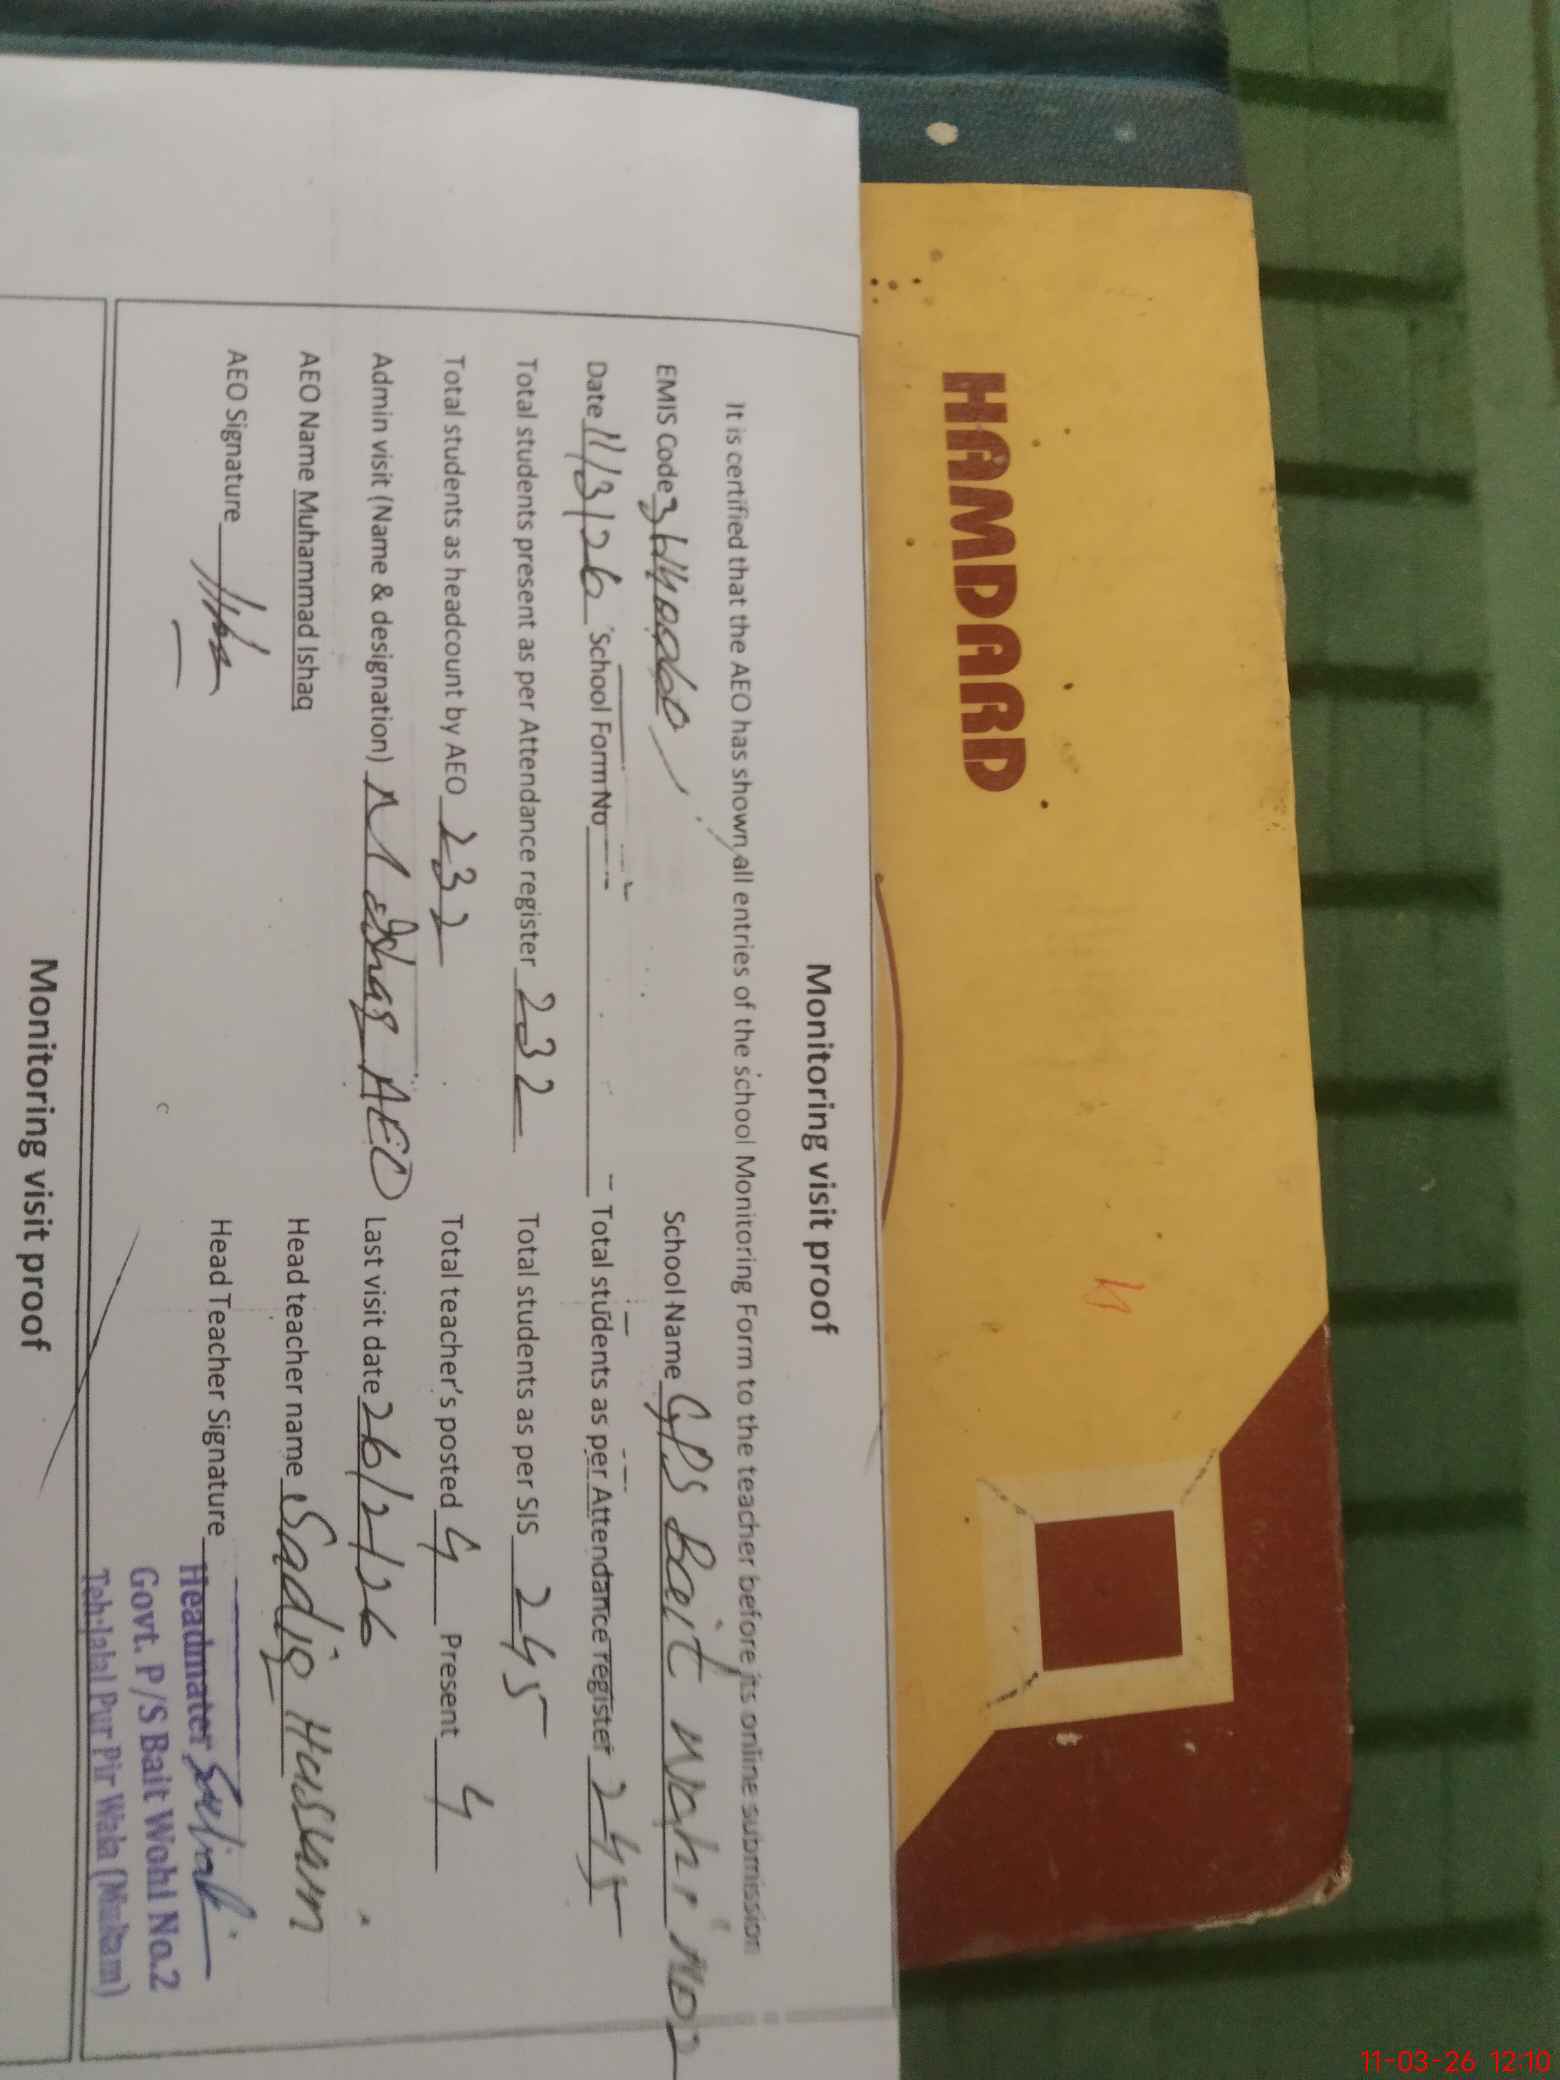 HAMDARD
Monitoring visit proof
It is certified that the AEO has shown all entries of the school Monitoring Form to the teacher before its online submission
EMIS Code School Name GPS Bait Wahi No 2
Date 11/3/26 School Form No Total students as per Attendance register 245
Total students present as per Attendance register 232 Total students as per SIS 245
Total students as headcount by AEO 232 Total teacher's posted 4 Present 4
Admin visit (Name & designation) M Ishaq AEO Last visit date 26/2/26
AEO Name Muhammad Ishaq Head teacher name Sadiq Hussain
AEO Signature Head Teacher Signature
Headmater
Govt. P/S Bait Wohl No.2
Teh: Jalal Pur Pir Wala (Multan)
Monitoring visit proof
11-03-26 12:10